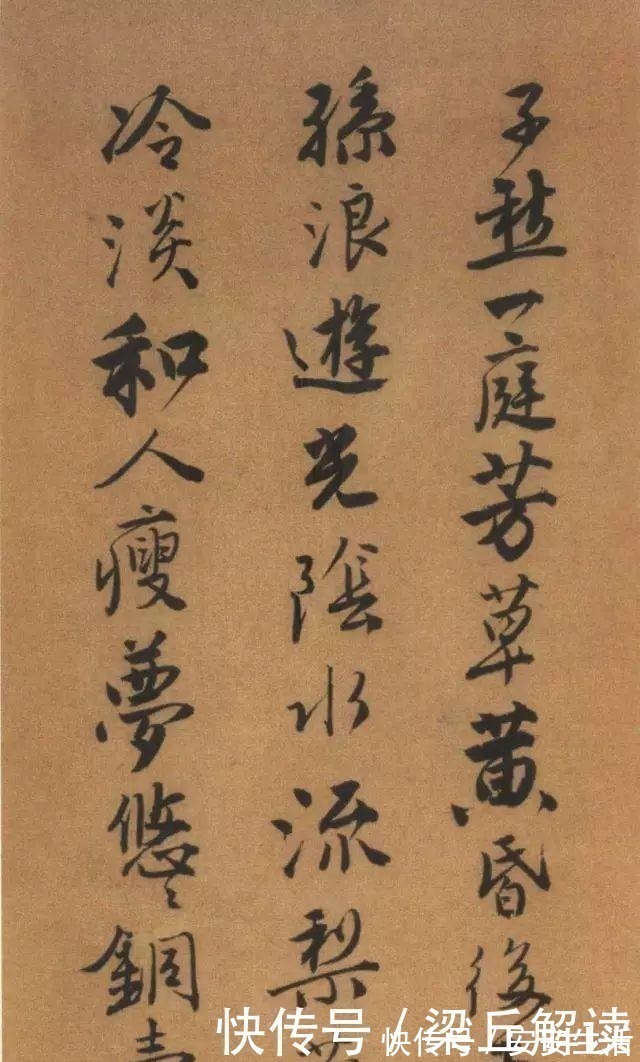 子愁一庭芳草黄昏後
孫浪遊光陰水流梨
冷淡和人瘦夢悠々銅
快传号 / 梁丘解读